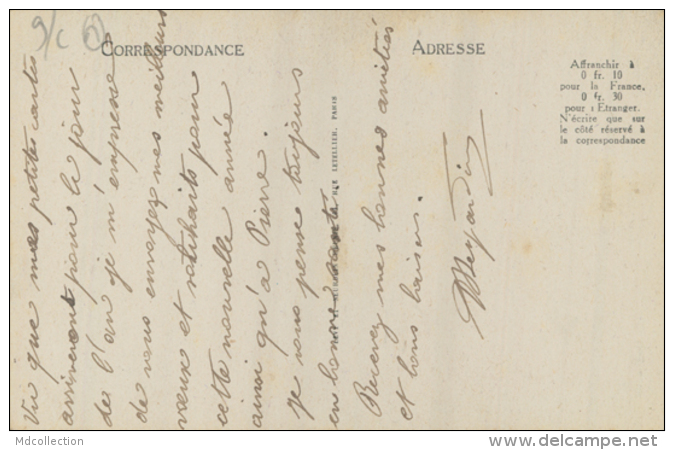 9/c
CORRESPONDANCE
ADRESSE
Affranchir à
0 fr. 10
pour la France,
0 fr. 30
pour l Etranger.
N'écrire que sur
le côté réservé à
la correspondance
LETELLIER, PARIS
Vu que mes petites cartes
arriveront pour le jour
de l'an je m'empresse
de vous envoyez mes meilleurs
vœux et souhaits pour
cette nouvelle année
ainsi qu'à Pierre.
Je vous pense toujours
en bonne santé.
Recevez mes bonnes amitiés
et bons baisers.
Mdcollection
www.delcampe.net